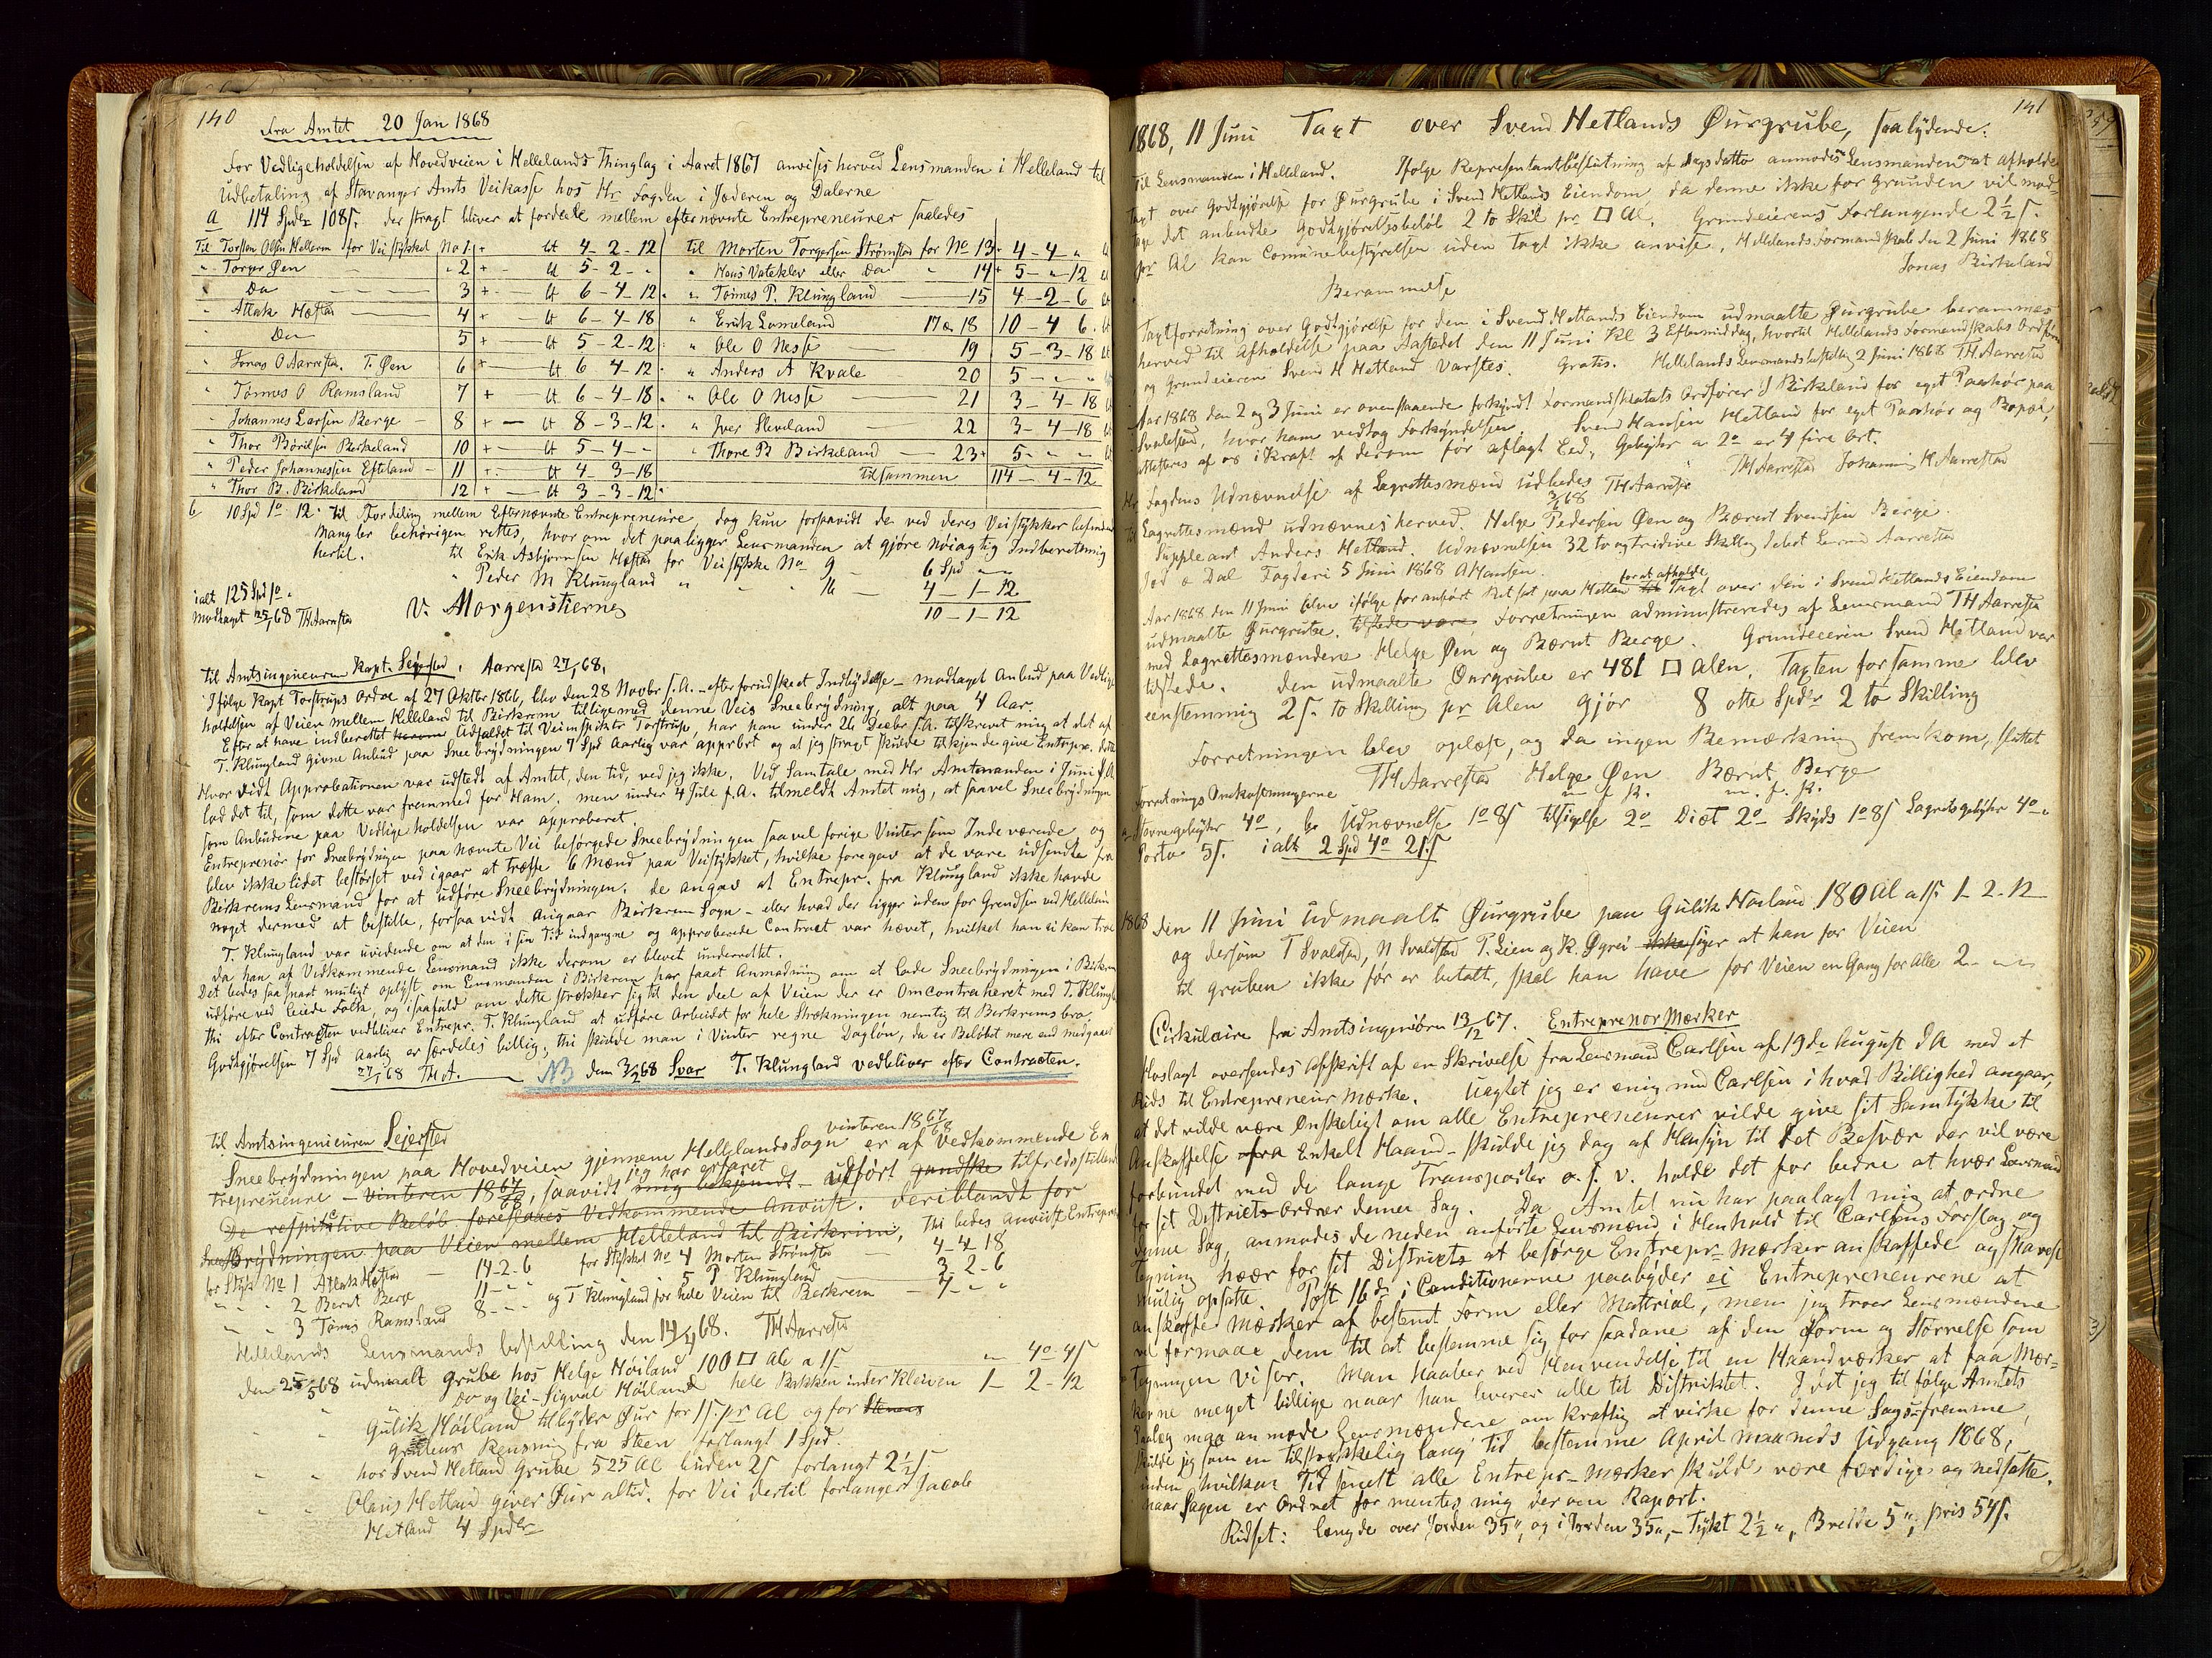 140
Fra Amtet 20 Jan 1868
For Vedligeholdelsen af Hovedveien i Hellelands Thinglag i Aaret 1867 anvises herved Lensmanden i Helleland til
Udbetaling af Stavanger Amts Veikasse hos Hr Fogden i Jæderen og Dalerne
a 114 Spdr 108s. der straxt bliver at fordeele mellem efternævnte Entrepreneurer saaledes
Til Torsten Olsen Hellern for Veistykket No 1 + lt 4-2-12 til Morten Torgersen Strømstad for No 13 + 4-4-"
" Torger Øen 2 + lt 5-2-" " Hans Vateklev eller Do 14 + 5-"-12
" Do 3 + lt 6-4-12 " Tønnes P. Klungland 15 4-2-6
" Atlak Hæstad 4 + lt 6-4-18 " Erik Lomeland 17 & 18 10-4-6
" Do 5 + lt 5-2-12 " Ole O Nesse 19 5-3-18
" Jonas O Aarrestad, T. Øen 6 + lt 6 4-12 " Anders A Kvale 20 5 - - "
" Tønnes O Ramsland 7 + lt 6-4-18 " Ole O Nesse 21 3-4-18
" Johannes Larsen Berge 8 + lt 8-3-12 " Iver Sleveland 22 3-4-18
" Thor Børildsen Birkeland 10 + lt 5-4-" " Thore B Birkeland 23 + 5 - - -
" Peder Johannessen Efteland 11 + lt 4 3-18 tilsammen 114-4-12
" Thor B. Birkeland 12 + lt 3-3-12
b 10 Spd 1o 12s til Fordeling mellem Efternævnte Entrepreneure, dog kun forsaavidt de ved deres Veistykker befundne
Mangler behørigen rettes, hvorom det paaligger Lensmanden at gjøre nøiagtig Indberetning
hertil. til Erik Asbjørnsen Hæstad for Veistykke No 9 6 Spd - -
" Peder M Klungland " " 16 4-1-12
10-1-12
ialt 125 Spd 1o "
Modtaget 25/1 68 THAarrestad V. Morgenstierne
Til Amtsingenieuren Kapt. Sejersted. Aarrestad 27/1 68.
Ifølge Kapt Torstrups Ordre af 27 Oktbr 1866, blev den 28 Novbr s.A. efter forudskeet Indbydelse - modtaget Anbud paa Vedlige
holdelsen af Veien mellem Helleland til Birkrem tilligemed denne Veis Sneebrydning, alt paa 4 Aar.
Efter at have indberettet Udfaldet til Veiinspektør Torstrup, har han under 26 Decbr s.A. tilskrevet mig at det af
T. Klungland givne Anbud paa Sneebrydningen 7 Spd aarlig var approbert og at jeg straxt skulde tilkjendegive Entrepr. dette
Hvorvidt Approbationen var udstedt af Amtet, den tid, ved jeg ikke. Ved Samtale med Hr Amtmanden i Juni f.A.
lod det til, som dette var fremmed for Ham. men under 4 Jule f.A. tilmeldte Amtet mig, at saavel Sneebrydningen
som Anbudene paa Vedligeholdelsen var approberet.
Entreprenør for Sneebrydningen paa nævnte Vei besørgede Sneebrydningen saavel forige Vinter som Indeværende og
blev ikke lidet bestørset ved igaar at træffe 6 Mænd paa Veistykket, hvilke foregav at de vare udsendte fra
Birkrems Lensmand for at udføre Sneebrydningen. de angav at Entrepr. fra Klungland ikke havde
noget dermed at bestille, forsaavidt angaar Birkrem Sogn - eller hvad der ligger udenfor Grendsen ved Helleland
T. Klungland var uvidende om at den i sin Tid indgangne og approberede Contract var hævet, hvilket han ei kan troe
da han af Vedkommende Lensmand ikke derom er blevet underrettet.
Det bedes saa snart muligt oplyst om Lensmanden i Birkrem har faaet Anmodning om at lade Sneebrydningen i Birkrem
udføre ved leiede Folk, og isaafald om dette strækker sig til den deel af Veien der er Omcontraheret med T. Klungland
thi efter Contracten vedbliver Entrepr. T. Klungland at udføre Arbeidet for hele Strækningen nemlig til Berkrems bro.
Godtgjørelsen 7 Spd aarlig er særdeles billig, thi skulde man i Vinter regne Dagløn, da er Beløbet mere end medgaaet
27/1 68 TH A. NB den 3/2 68 Svar T. Klungland vedbliver efter Contracten.
til Amtsingenieuren Sejersted
vinteren 1867/68
Sneebrydningen paa Hovedveien gjennem Hellelands Sogn er af Vedkommende En
jeg har erfaret
trepreneure - vinteren 1867/68, saavidt mig bekjendt - udført gandske tilfredsstillende
De respective Beløb foreslaaes Vedkommende anviist. deriblandt for
Sneebrydningen paa Veien mellem Helleland til Birkrem, thi bedes anviist Entrepren
for Styk No 1 Atlak Hæstad 14-2-6 for Stykket No 4 Morten Strømstad 4-4-18
" " 2 Bernt Berge 11-" " " 5 P Klungland 3-2-6
" " 3 Tønnes Ramsland 8-- " og T Klungland for hele Veien til Berkrem 7-" "
Hellelands Lensmands bestilling den 14/4 68. THAarrestad
den 25/5 68 udmaalt Grube hos Helge Høiland 100 □ Al a 1s. " 4o-4s
" " Do og Vei - Sigval Høiland hele Bakken under Kleiven 1-2-12
" " Gulik Høiland tilbyder Øur for 1s. pr Al og for Stenens
grubens Rensning fra Steen forlangt 1 Spd.
" " hos Svend Hetland Grube 525 Al buden 2s forlangt 2½s.
" " Olaus Hetland giver Øur altid. for Vei dertil forlanger Jacob
Hetland 4 Spdr
141
1868, 11 Juni Taxt over Svend Hetlands Øurgrube, saalydende:
Til Lensmanden i Helleland. Ifølge Representantbeslutning af Dagsdatto anmodes Lensmanden at afholde
Taxt over Godtgjørelse for Øurgrube i Svend Hetlands Eiendom, da denne ikke for Grunden vil mod-
tage det anbudte Godtgjørelsesbeløb 2 to Skil pr □ Al. Grundeierens Forlangende 2½s.
pr Al kan Comunebestyrelsen uden Taxt ikke anvise. Hellelands Formandskab den 2 Juni 1868
Jonas Birkeland
Berammelse
Taxtforretning over Godtgjørelse for den i Svend Hetlands Eiendom udmaalte Øurgrube berammes
herved til Afholdelse paa Aastedet den 11 Juni Kl 3 Eftermiddag, hvortil Hellelands Formandskabs Ordfører
og Grundeieren Svend H Hetland varsles. Gratis. Hellelands Lensmandsbestilling 2 Juni 1868 THAarrestad
Aar 1868 den 2 og 3 Juni er ovenstaaende forkyndt Formandskabets Ordfører J Birkeland for eget Paahør paa
Svalestad, hvor ham vedtog Forkyndelsen. Svend Hansen Hetland for eget Paahør og Bopæl,
attesteres af os i Kraft af derom før aflagt Eed. Gebyhr a 2o er 4 fire Ort.
THAarrestad Johannis H Aarrestad
Hr Fogdens Udnævnelse af Lagrettesmænd udbedes 3/6 68 THAarrestad
Til Lagrettesmænd udnævnes herved. Helge Pedersen Øen og Bærnt Svendsen Berge.
Suppleant Anders Hetland. Udnævnelsen 32 to og tredive Skilling debet Lensmd Aarrestad
Jed & Dal Fogderi 5 Juni 1868 A Hansen.
Aar 1868 den 11 Juni blev ifølge foranført Ret sat paa Hetland for at afholde Taxt over den i Svend Hetlands Eiendom
udmaalte Øurgrube. tilstede vare. Forretningen administreredes af Lensmand THAarrestad
med Lagrettesmændene Helge Øen og Bærnt Berge. Grundeeieren Svend Hetland var
tilstede. den udmaalte Øurgrube er 481 □ Alen. Taxten for samme blev
eenstemmig 2s. to Skilling pr Alen gjør 8 otte Spdr 2 to Skilling
Forretningen blev oplæst, og da ingen Bemærkning fremkom, sluttet
THAarrestad Helge Øen Bærnt Berge
m. f. P. m. f. P.
Forretnings Omkostningerne
a Stevnegebyhr 4o, b Udnævnelse 1o 8s Tilsigelse 2o Diæt 2o Skyds 1o 8s Lagretsgebyhr 4o "
Porto 5s. ialt 2 Spd 4o 21s
1868 den 11 Juni udmaalt Øurgrube paa Gulik Høiland 180 Al a 1s 1-2-12
og dersom T Svalestad, N Svalestad P. Lien og K. Øgrei ikke siger at han for Veien
til gruben ikke før er betalt, skal han have for Veien en Gang for Alle 2-- "
Cirkulaire fra Amtsingeniøren 13/12 67. Entreprenor Mærker
Hoslagt oversendes Afskrift af en Skrivelse fra Lensmand Carlsen af 19de August dA med et
Rids til Entrepreneur Mærke. Uagtet jeg er enig med Carlsen i hvad Billighed angaar,
at det vilde være Ønskeligt om alle Entrepreneurer vilde give sit Samtykke til
Anskaffelse fra Enkelt Haand - skulde jeg dog af Hensyn til det Besvær der vil være
forbundet med de lange Transporter o.s.v. holde det for bedre at hver Lensmand
for sit District Ordner denne Sag. Da Amtet nu har paalagt mig at ordne
denne Sag, anmodes de neden anførte Lensmænd i Henhold til Carlsens Forslag og
Tegning hver for sit District at besørge Entrepr-mærker anskaffede og snarest
mulig opsatte. Post 16de i Conditionerne paabyder ei Entrepreneurene at
anskaffe Mærker af bestemt Form eller Matrial, men jeg troer Lensmændene
vil formaae dem til at bestemme sig for saadane af den Form og Størrelse som
Tegningen viser. Man Haaber ved Henvendelse til en Haandværker at faa Mær-
kerne meget billige naar han leverer alle til Distriktet. Idet jeg til følge Amtets
Paalæg maa anmode Lensmændene om kraftig at virke for denne Sags fremme,
skulde jeg som en tilstrækkelig lang Tid bestemme April maaneds Udgang 1868,
inden hvilken Tid senest alle Entrepr-mærker skulde være færdige og nedsatte.
naar Sagen er Ordnet formentes mig derom Raport.
Ridset: længde over Jorden 35", og i Jorden 35", - Tykt 2½", Bredde 5", pris 54s.